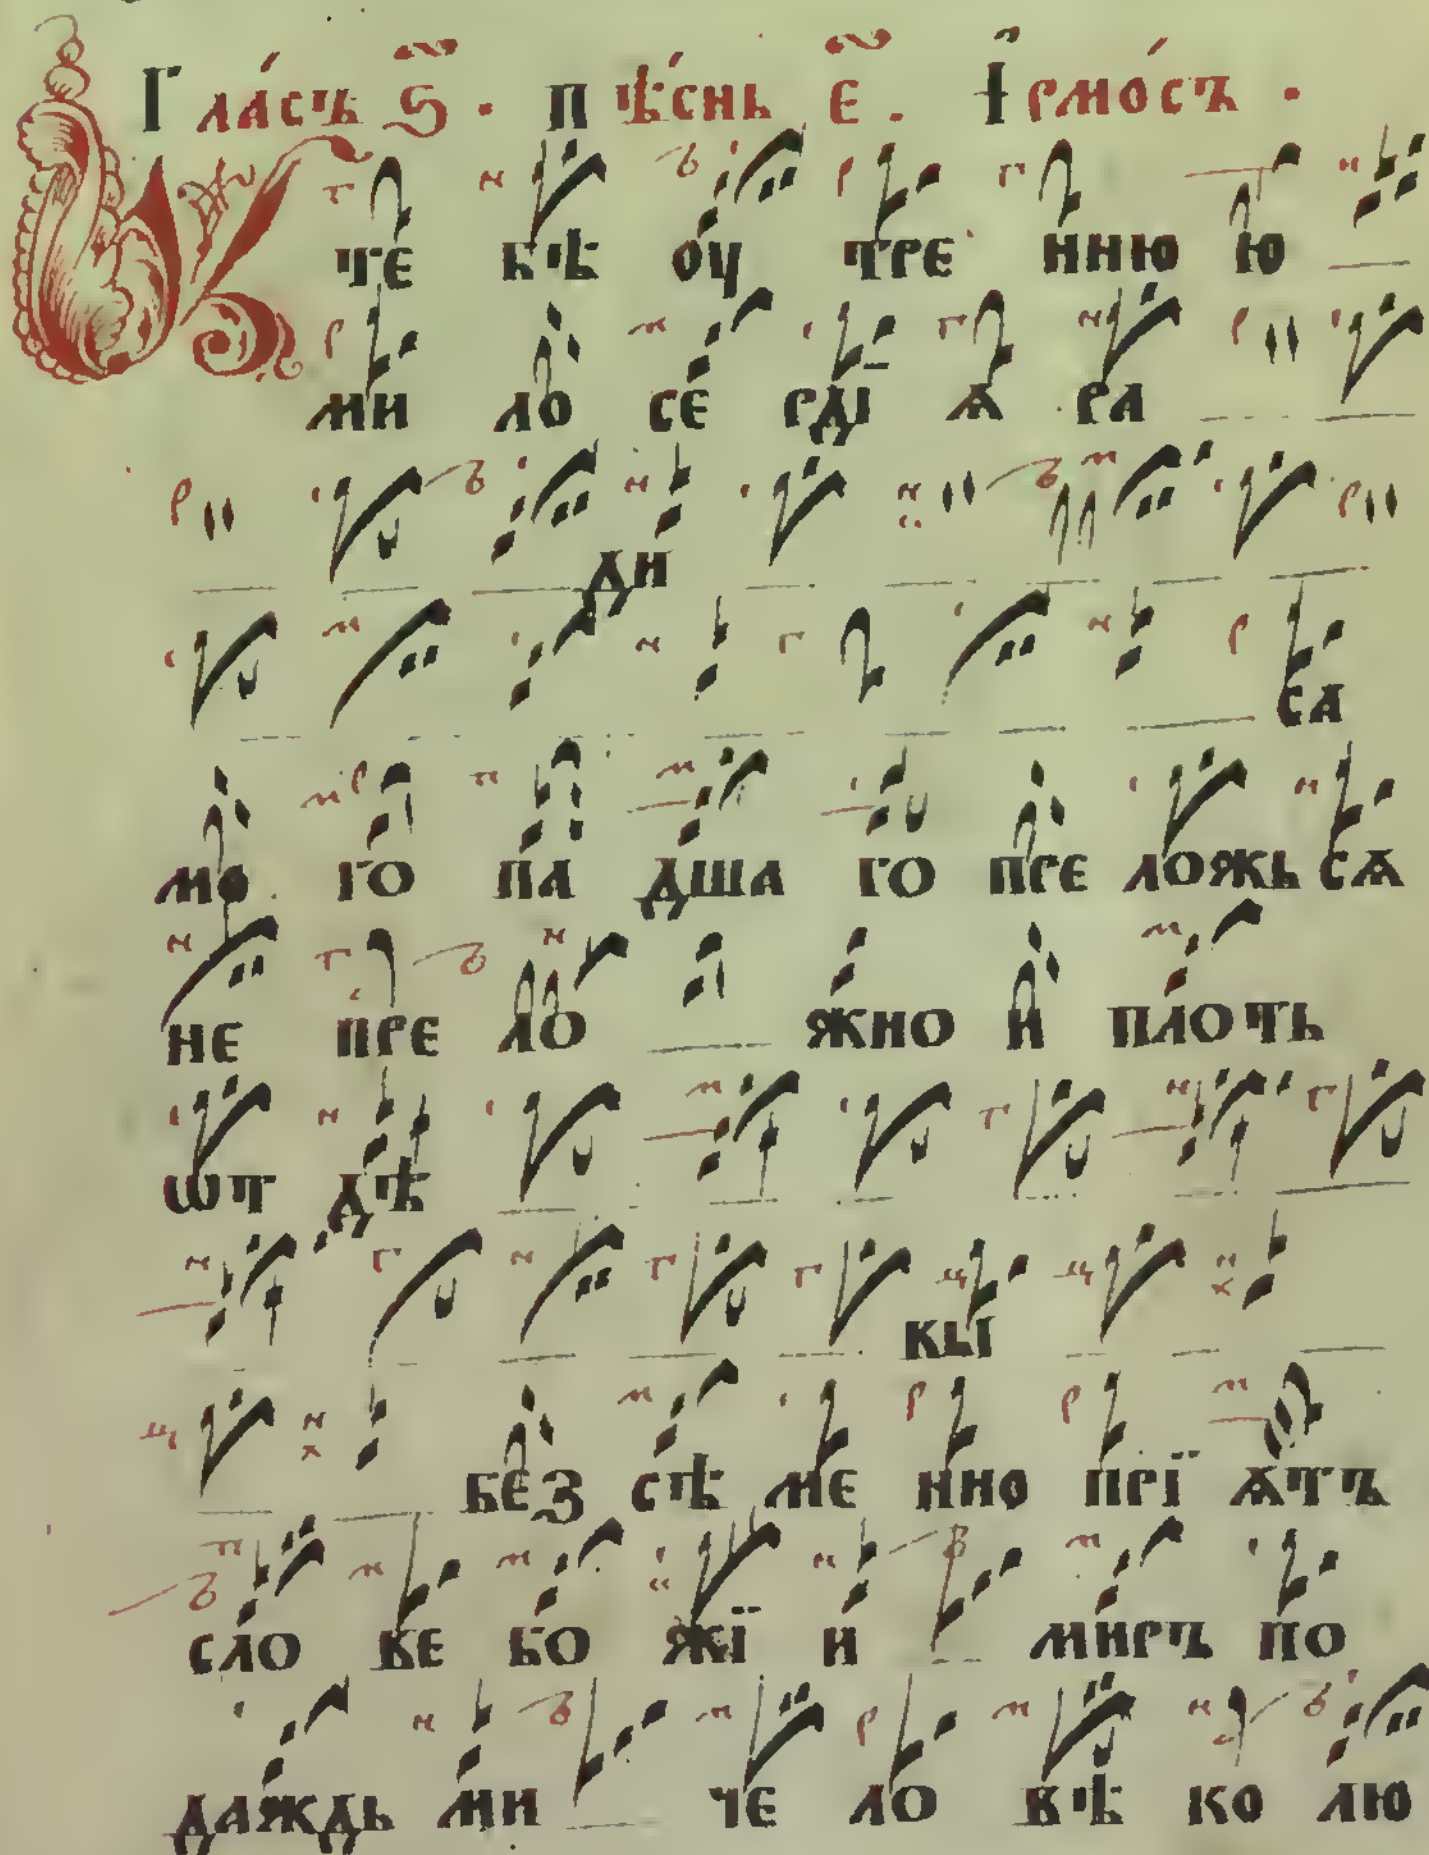 Гла́съ ѕ҃ · пѣ́снь є҃ . І҆рмо́съ ·
К тебѣ оу тре ннюю ю
ми ло се рдї ѧ ра
ди
са
мо го па дша го пре ложь сѧ
не пре ло жно и плоть
ѿт дѣ
вы
без сѣ ме нно прї ѧтъ
сло ве бо жї и миръ по
даждь ми че ло вѣ ко лю